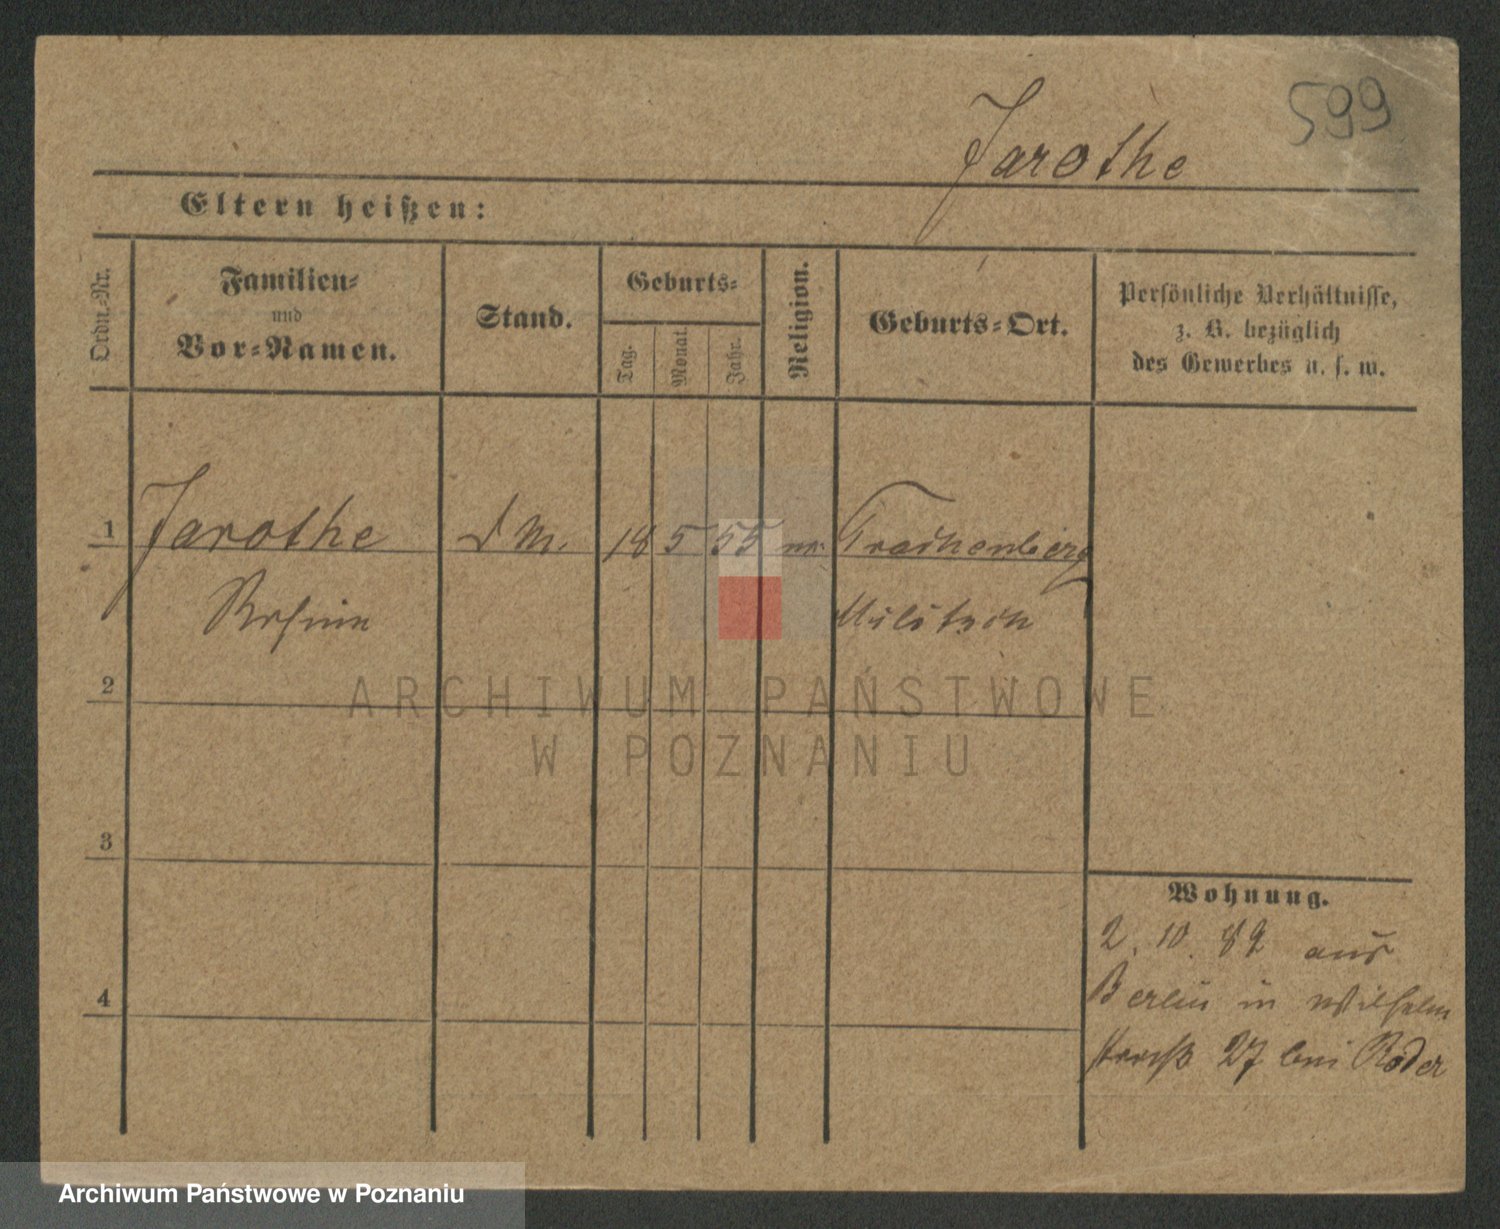 599
Jarothe
Eltern heißen:
Ordn.-Nr.
Familien-
und
Vor-Namen.
Stand.
Geburts-
Tag.
Monat.
Jahr.
Religion.
Geburts-Ort.
Persönliche Verhältnisse,
z. B. bezüglich
des Gewerbes u. s. w.
1 Jarothe d M. 18 5 55 Trachenberg
Rosina Militsch
2
ARCHIWUM PAŃSTWOWE
W POZNANIU
3
Wohnung.
2. 10. 89 aus
4
Berlin in Wilhelm
straß 27 bei Röder
Archiwum Państwowe w Poznaniu